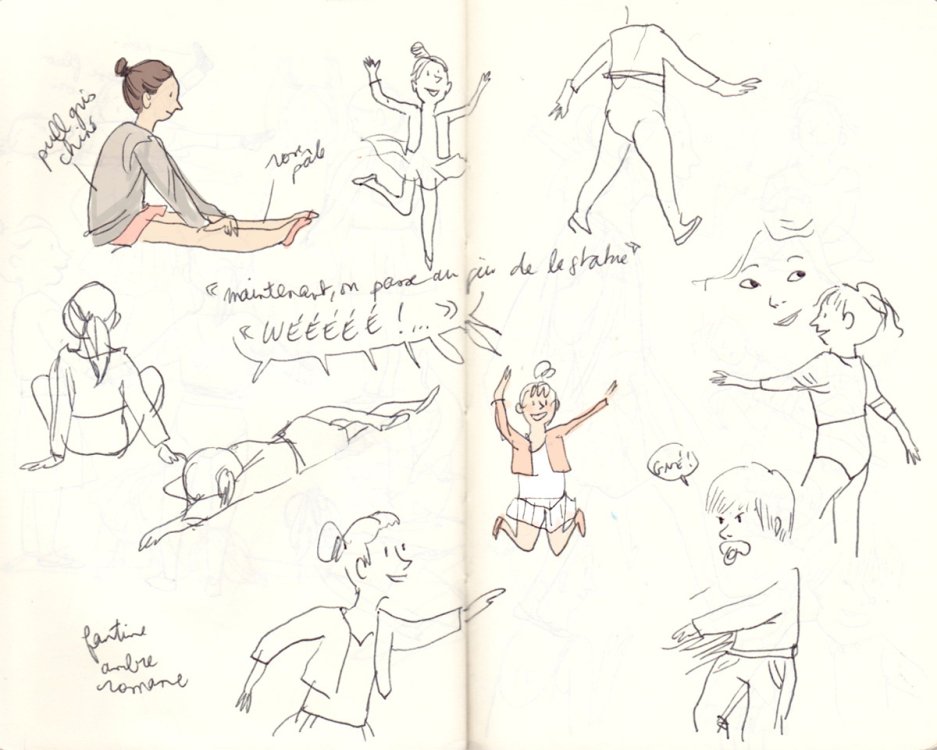 pull gris
chiné
rose
pâle
"maintenant, on passe au jeu de la statue"
« WÉÉÉÉÉ !... »
GNÉ!
fantine
ambre
romane